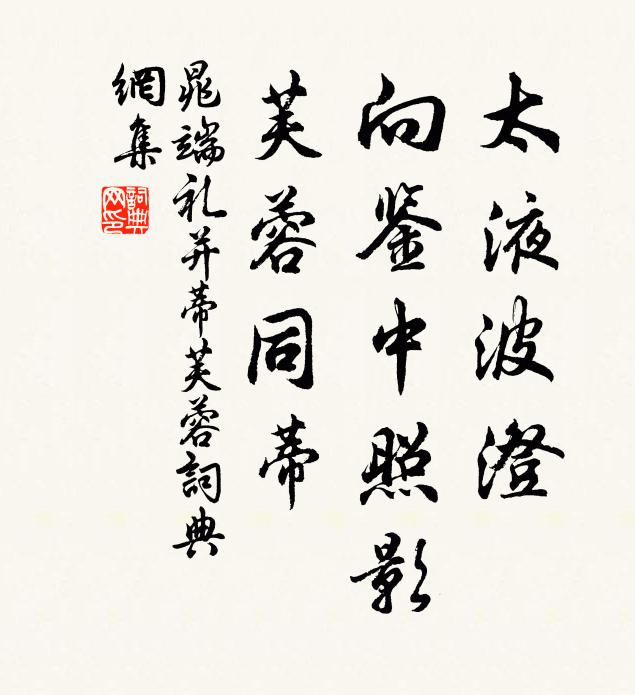 太液波澄
向鉴中照影
芙蓉同蒂
晁端礼并蒂芙蓉詞典
網集
詞典
网印